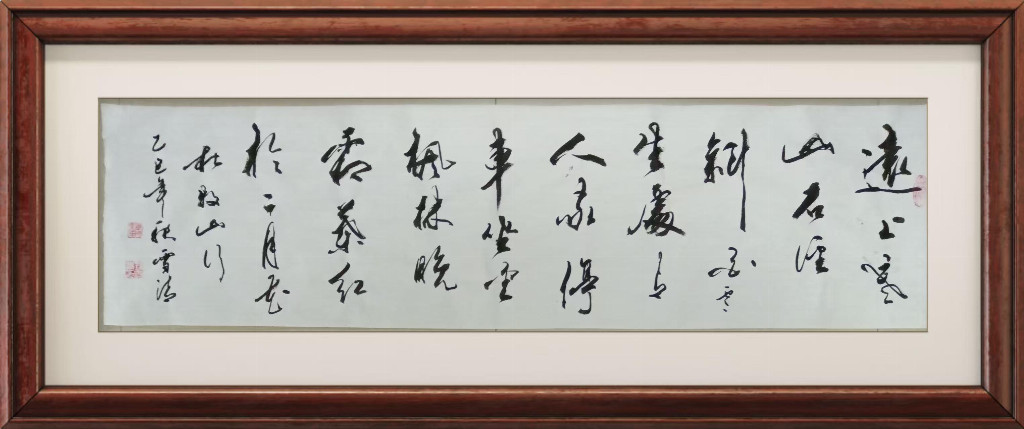 遠上寒
山石徑
斜白雲
生處有
人家停
車坐愛
楓林晚
霜葉紅
於二月花
杜牧山行
乙巳年